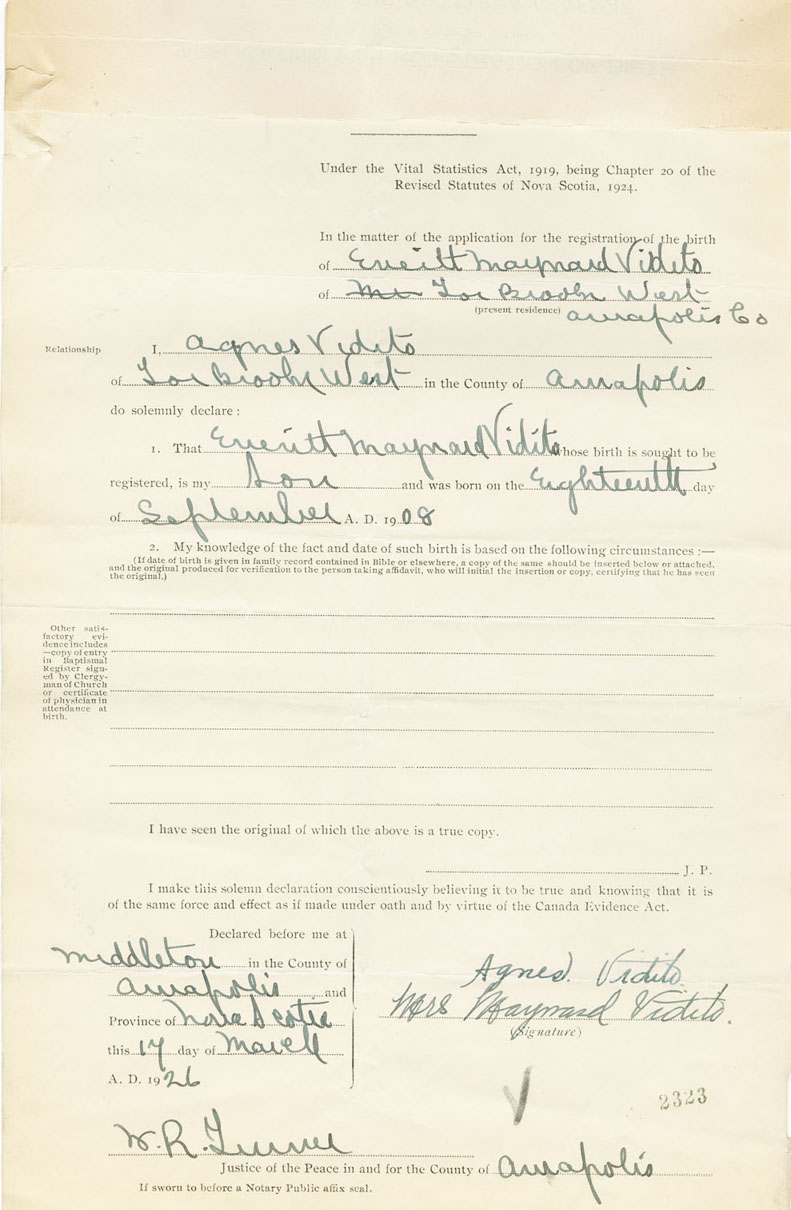 Under the Vital Statistics Act, 1919, being Chapter 20 of the
Revised Statutes of Nova Scotia, 1924.
In the matter of the application for the registration of the birth
of Everitt Maynard Vidito
of Torbrook West
(present residence) Annapolis Co
Relationship
I, Agnes Vidito
of Torbrook West in the County of Annapolis
do solemnly declare :
1. That Everitt Maynard Vidito whose birth is sought to be
registered, is my Son and was born on the Eighteenth day
of September A. D. 1908
2. My knowledge of the fact and date of such birth is based on the following circumstances :—
(If date of birth is given in family record contained in Bible or elsewhere, a copy of the same should be inserted below or attached,
and the original produced for verification to the person taking affidavit, who will initial the insertion or copy, certifying that he has seen
the original.)
Other satis-
factory evi-
dence includes
—copy of entry
in Baptismal
Register sign-
ed by Clergy-
man of Church
or certificate
of physician in
attendance at
birth.
I have seen the original of which the above is a true copy.
J. P.
I make this solemn declaration conscientiously believing it to be true and knowing that it is
of the same force and effect as if made under oath and by virtue of the Canada Evidence Act.
Declared before me at
Middleton in the County of
Annapolis and
Province of Nova Scotia
this 17 day of March
A. D. 1926
Agnes. Vidito
Mrs Maynard Vidito.
(Signature)
2323
W. R. Turner
Justice of the Peace in and for the County of Annapolis
If sworn to before a Notary Public affix seal.